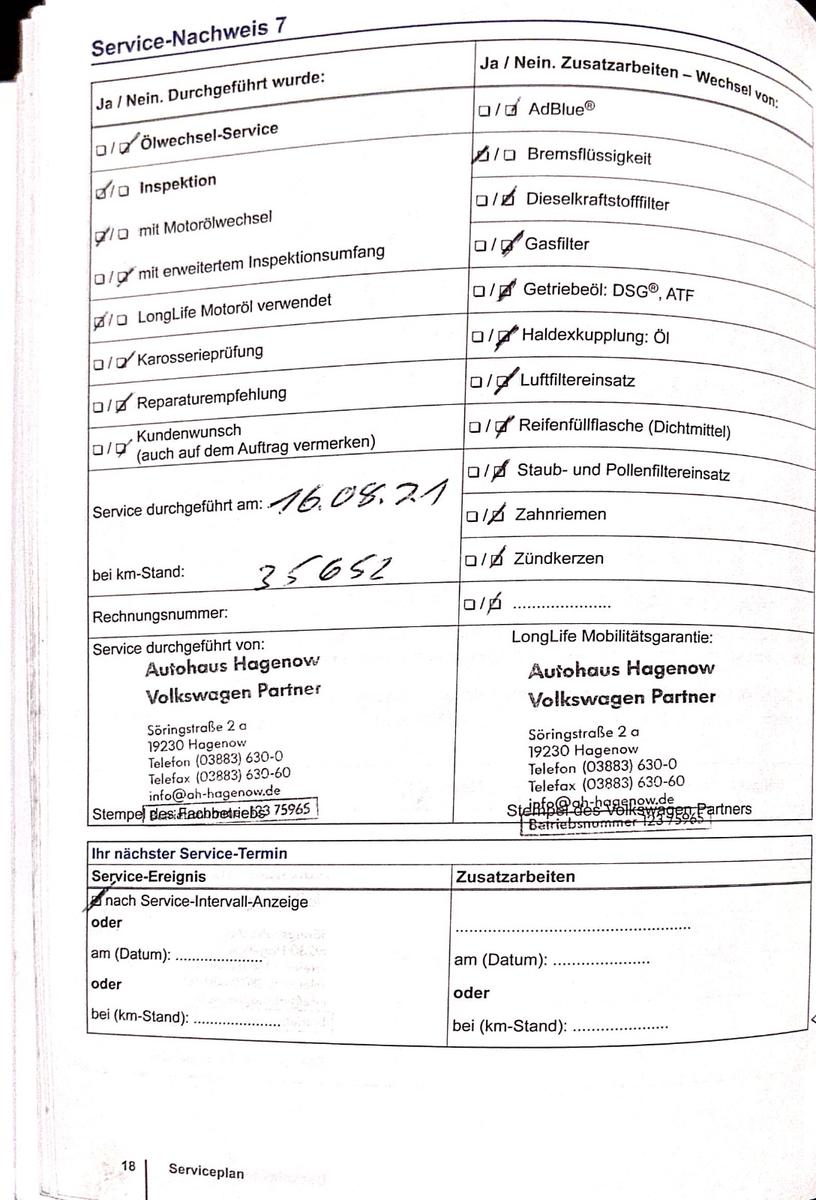 Service-Nachweis 7
Ja / Nein. Durchgeführt wurde:
☐ / ☑ Ölwechsel-Service
☑ / ☐ Inspektion
☑ / ☐ mit Motorölwechsel
☐ / ☑ mit erweitertem Inspektionsumfang
☑ / ☐ LongLife Motoröl verwendet
☐ / ☑ Karosserieprüfung
☐ / ☑ Reparaturempfehlung
☐ / ☑ Kundenwunsch
(auch auf dem Auftrag vermerken)
Service durchgeführt am: 16.08.21
bei km-Stand: 35652
Rechnungsnummer:
Service durchgeführt von:
Autohaus Hagenow
Volkswagen Partner
Söringstraße 2 a
19230 Hagenow
Telefon (03883) 630-0
Telefax (03883) 630-60
info@ah-hagenow.de
Betriebsnummer 123 75965
Stempel des Fachbetriebs
Ja / Nein. Zusatzarbeiten – Wechsel von:
☐ / ☑ AdBlue®
☑ / ☐ Bremsflüssigkeit
☐ / ☑ Dieselkraftstofffilter
☐ / ☑ Gasfilter
☐ / ☑ Getriebeöl: DSG®, ATF
☐ / ☑ Haldexkupplung: Öl
☐ / ☑ Luftfiltereinsatz
☐ / ☑ Reifenfüllflasche (Dichtmittel)
☐ / ☑ Staub- und Pollenfiltereinsatz
☐ / ☑ Zahnriemen
☐ / ☑ Zündkerzen
☐ / ☑ ......................
LongLife Mobilitätsgarantie:
Autohaus Hagenow
Volkswagen Partner
Söringstraße 2 a
19230 Hagenow
Telefon (03883) 630-0
Telefax (03883) 630-60
info@ah-hagenow.de
Stempel des Volkswagen Partners
Betriebsnummer 123 75965
Ihr nächster Service-Termin
Service-Ereignis
☑ nach Service-Intervall-Anzeige
oder
am (Datum): ....................
oder
bei (km-Stand): ....................
Zusatzarbeiten
....................................................
am (Datum): ......................
oder
bei (km-Stand): ......................
18 Serviceplan